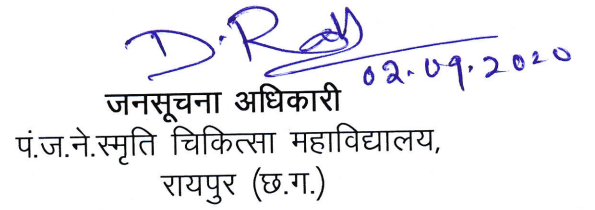 02.09.2020
जनसूचना अधिकारी
पं.ज.ने.स्मृति चिकित्सा महाविद्यालय,
रायपुर (छ.ग.)